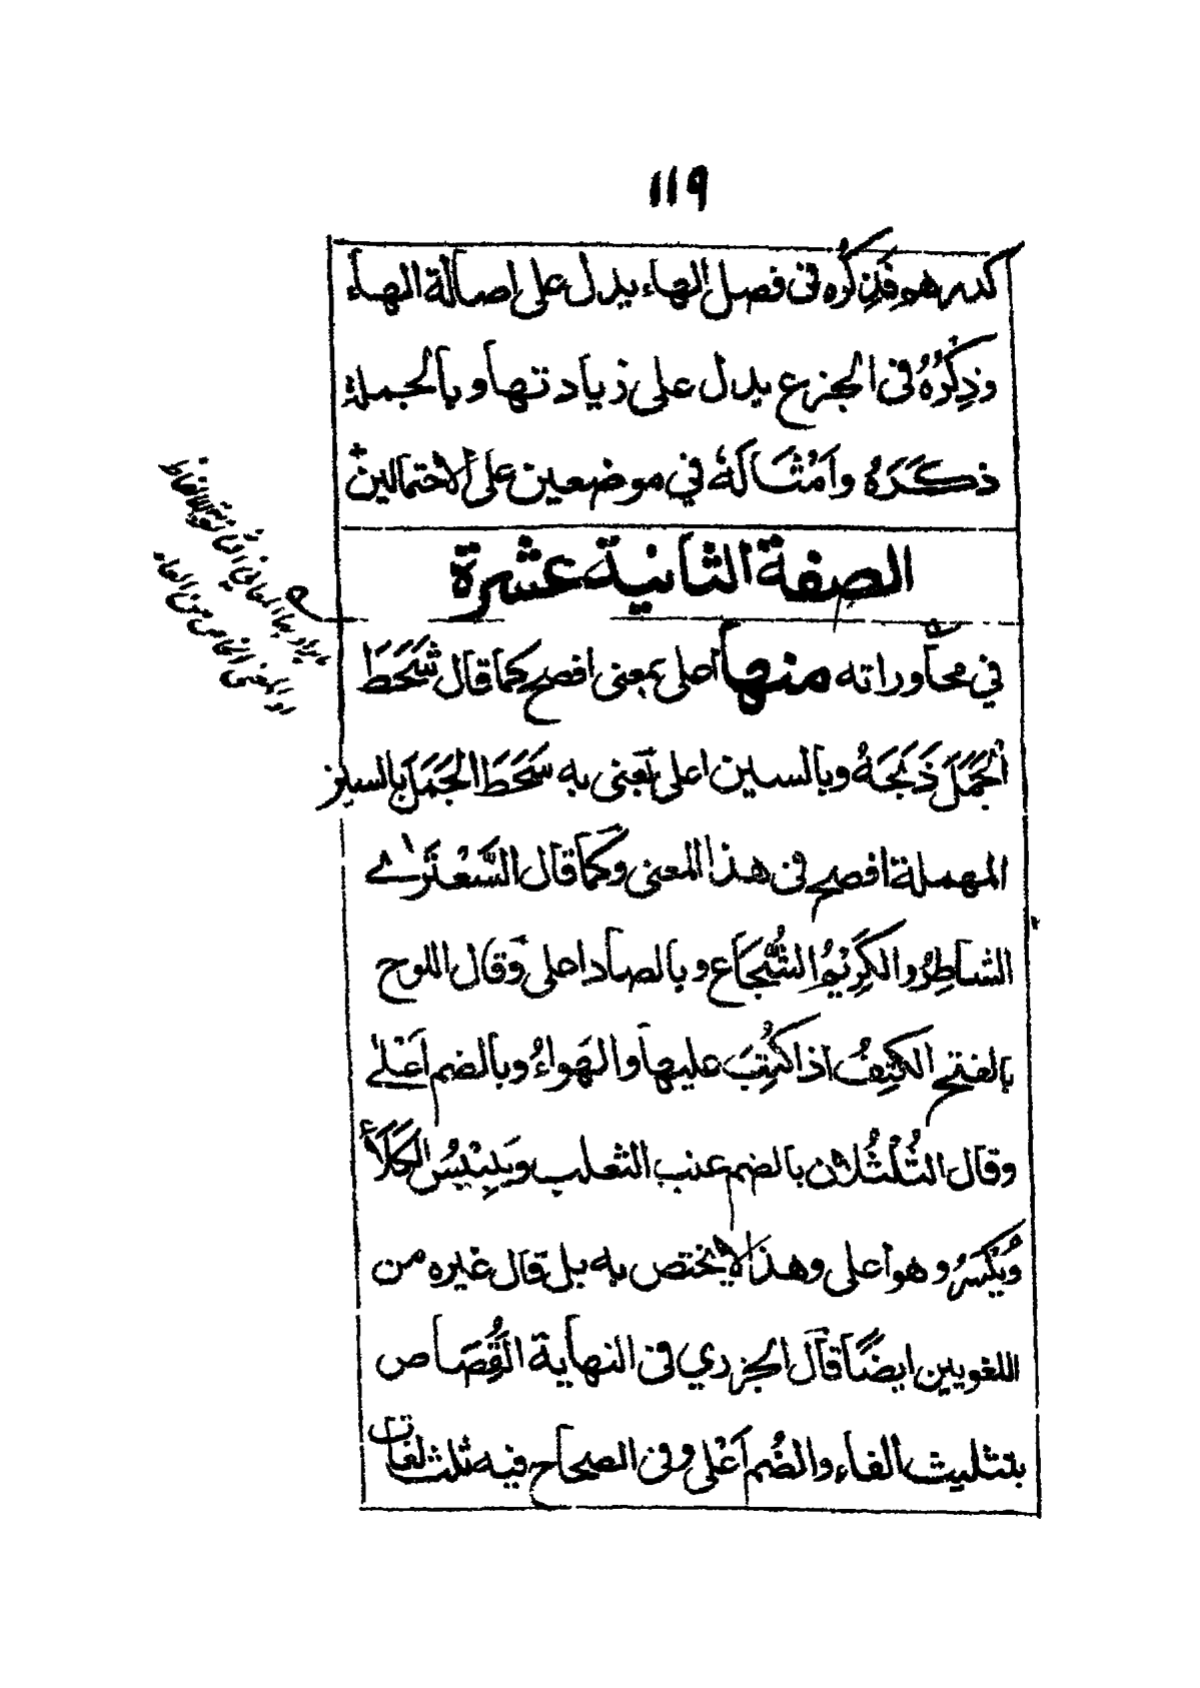 ١١٩
كدرهم فَذِكْرُه فى فصل الهاء يدل على اصالة الهاء
وَذِكْرُهُ فى الجزع يدل على زيادتها وبالجملة
ذكَرَهُ وامْثَالَهُ في موضعين على الاحتمالين
الصفة الثانية عشرة
في محاوراته منها اعلى بمعنى افصح كما قال شَحَطَ
الْجَمَلَ ذَبَحَهُ وبالسين اعلى يَعنى به سَحَطَ الجَمَلَ بالسين
المهملة افصح فى هذا المعنى وكما قال السَّعْتَرِىُّ
الشاطِرُ والكَرِيْمُ الشُّجَاع وبالصاد اعلى وَقال اللوح
بالفتح الكَتِفُ اذا كُتِبَ عليها والهَواءُ وبالضم اَعْلىٰ
وقال الثُلْثُلان بالضم عنب الثعلب ويَبِيْسُ الكَلَأ
وَيُكْسَرُ وهو اعلى وهذا لا يختص به بل قال غيره من
اللغويين ايضًا قال الجزري فى النهاية القُصَاص
بتثليث الفاء والضُم اَعْلى وفى الصحاح فيه ثلث لغات